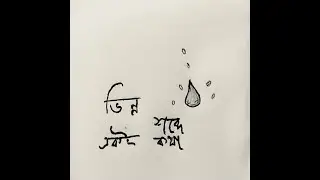 ভিন্ন
শব্দে
একই কথা